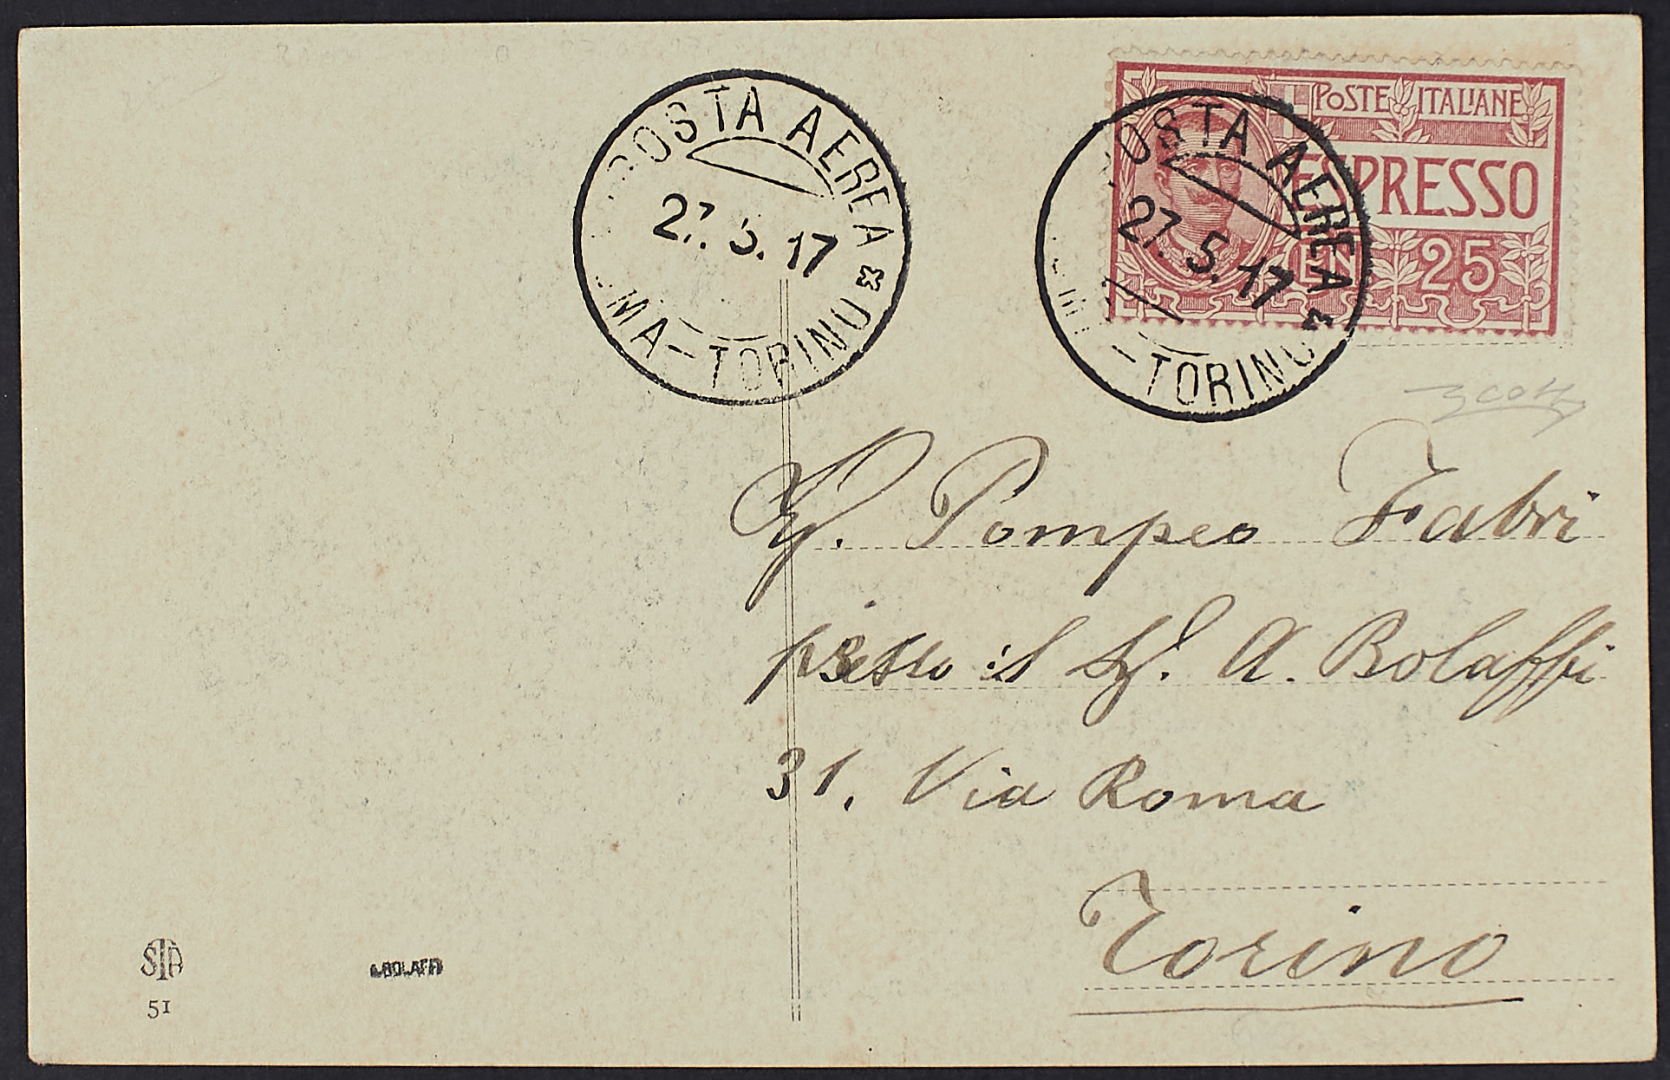 POSTA AEREA
27. 5. 17
MA-TORINO
OSTA AEREA
27. 5. 17
-TORINO
POSTE ITALIANE
ESPRESSO
CEN 25
Pompeo Fabri
presso il Sigʳ. A. Bolaffi
31. Via Roma
Torino
STA
51
A. BOLAFFI